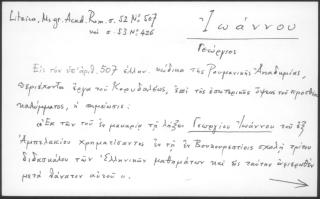 Litzica, Ms gr. Acad. Rom. σ. 52 Nº 507
καὶ σ. 53 Nº 426
Ἰωάννου
Γεώργιος
Εἰς τὸν ὑπ' ἀριθ. 507 ἑλλην. κώδικα τῆς Ρουμανικῆς Ἀκαδημίας,
περιέχοντα ἔργα τοῦ Κορυδαλέως, ἐπὶ τῆς ἐσωτερικῆς ὄψεως τοῦ προσθίου
καλύμματος, ἡ σημείωσις:
«Ἐκ τῶν τοῦ ἐν μακαρίᾳ τῇ λήξει Γεωργίου Ἰωάννου τοῦ ἐξ
Ἀμπελακίου χρηματίσαντος ἐν τῇ ἐν Βουκουρεστίοις σχολῇ τρίτου
διδασκάλου τῶν Ἑλληνικῶν μαθημάτων καὶ εἰς ταύτην ἀφιερωθὲν
μετὰ θάνατον αὐτοῦ».